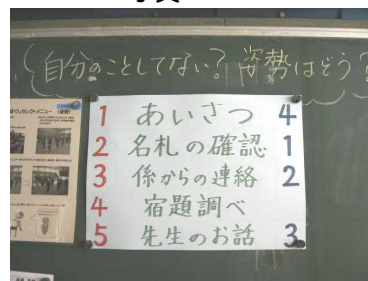 自分のことしてない？姿勢はどう？
1 あいさつ 4
2 名札の確認 1
3 係からの連絡 2
4 宿題調べ
5 先生のお話 3